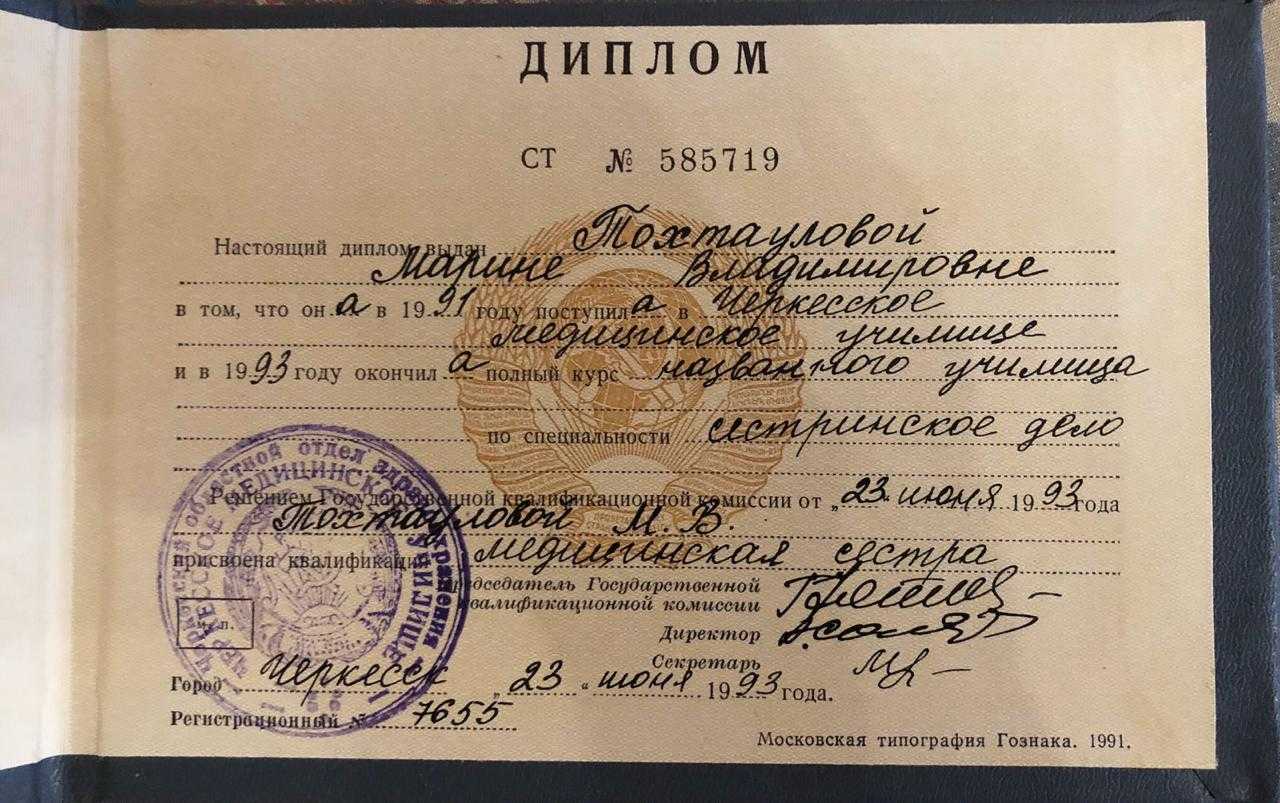 ДИПЛОМ
СТ № 585719
Настоящий диплом выдан Тохтауловой
Марине Владимировне
в том, что он а в 1991 году поступил а в Черкесское
медицинское училище
и в 1993 году окончил а полный курс названного училища
по специальности сестринское дело
Решением Государственной квалификационной комиссии от „23 июня 1993 года
Тохтауловой М. В.
присвоена квалификация медицинская сестра
Председатель Государственной
квалификационной комиссии
Директор
Секретарь
м. п.
Город Черкесск „23“ июня 1993 года.
Регистрационный № 7655
Московская типография Гознака. 1991.
областной отдел здравоохранения
ЧЕРКЕССКОЕ МЕДИЦИНСКОЕ УЧИЛИЩЕ